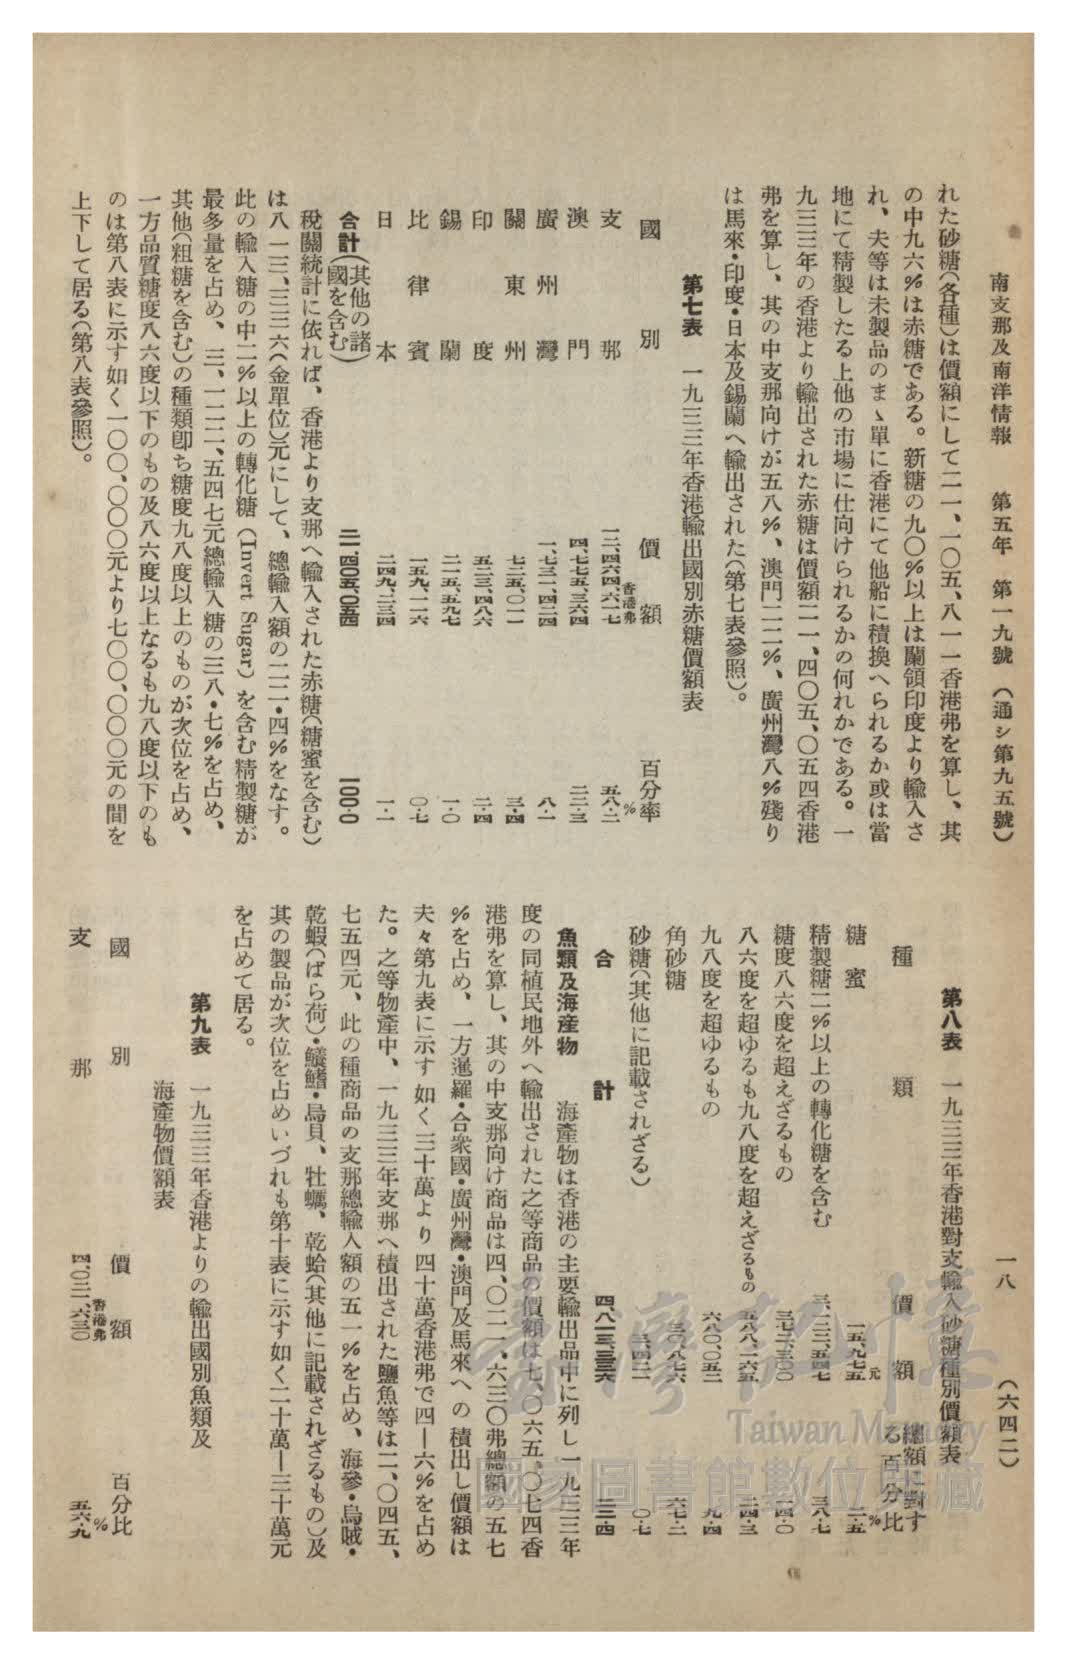 南支那及南洋情報　第五年　第一九號　（通シ第九五號）
一八　（六四二）
れた砂糖（各種）は價額にして二一、一〇五、八一一香港弗を算し、其
の中九六％は赤糖である。新糖の九〇％以上は蘭領印度より輸入さ
れ、夫等は未製品のまゝ單に香港にて他船に積換へられるか或は當
地にて精製したる上他の市場に仕向けられるかの何れかである。一
九三三年の香港より輸出された赤糖は價額二一、四〇五、〇五四香港
弗を算し、其の中支那向けが五八％、澳門二二％、廣州灣八％殘り
は馬來・印度・日本及錫蘭へ輸出された（第七表參照）。
第七表　一九三三年香港輸出國別赤糖價額表
國別　價額　百分率
香港弗　％
支那　一二、四六四、六一七　五八・二
澳門　四、七七五、三六四　二二・三
廣州灣　一、七三一、四二四　八・一
關東州　七二五、〇一一　三・四
印度　五二三、四八六　二・四
錫蘭　二一五、五九七　一・〇
比律賓　一五九、一二六　〇・七
日本　二四九、二三四　一・一
合計（其他の諸國を含む）　二一、四〇五、〇五四　一〇〇・〇
稅關統計に依れば、香港より支那へ輸入された赤糖（糖蜜を含む）
は八一三、三三六（金單位）元にして、總輸入額の二二・四％をなす。
此の輸入糖の中二％以上の轉化糖（Invert Sugar）を含む精製糖が
最多量を占め、三、一二二、五四七元總輸入糖の三八・七％を占め、
其他（粗糖を含む）の種類卽ち糖度九八度以上のものが次位を占め、
一方品質糖度八六度以下のもの及八六度以上なるも九八度以下のも
のは第八表に示す如く一〇〇、〇〇〇元より七〇〇、〇〇〇元の間を
上下して居る（第八表參照）。
第八表　一九三三年香港對支輸入砂糖種別價額表
種類　價額　總額に對する百分比
元　％
糖蜜　一五、九七五　二・五
精製糖二％以上の轉化糖を含む　三、一二二、五四七　三八・七
糖度八六度を超えざるもの　三七二、三〇〇　二四・〇
八六度を超ゆるも九八度を超えざるもの　五八八、二六五　二四・三
九八度を超ゆるもの　六八〇、〇五二　九・四
角砂糖　三〇、八七六　六七・二
砂糖（其他に記載されざる）　三、四二一　〇・七
合計　四、八一三、三三六　二二・四
魚類及海産物　海產物は香港の主要輸出品中に列し一九三三年
度の同植民地外へ輸出された之等商品の價額は七、〇六五、〇七四香
港弗を算し、其の中支那向け商品は四、〇二一・六三〇弗總額の五七
％を占め、一方暹羅・合衆國・廣州灣・澳門及馬來への積出し價額は
夫々第九表に示す如く三十萬より四十萬香港弗で四—六％を占め
た。之等物產中、一九三三年支那へ積出された鹽魚等は二、〇四五、
七五四元、此の種商品の支那總輸入額の五一％を占め、海參・烏賊・
乾蝦（ばら荷）・鱶鰭・烏貝、牡蠣、乾蛤（其他に記載されざるもの）及
其の製品が次位を占めいづれも第十表に示す如く二十萬—三十萬元
を占めて居る。
第九表　一九三三年香港よりの輸出國別魚類及
海產物價額表
國別　價額　百分比
香港弗　％
支那　四、〇二一、六三〇　五六・九
臺灣記憶
Taiwan Memory
國家圖書館數位典藏